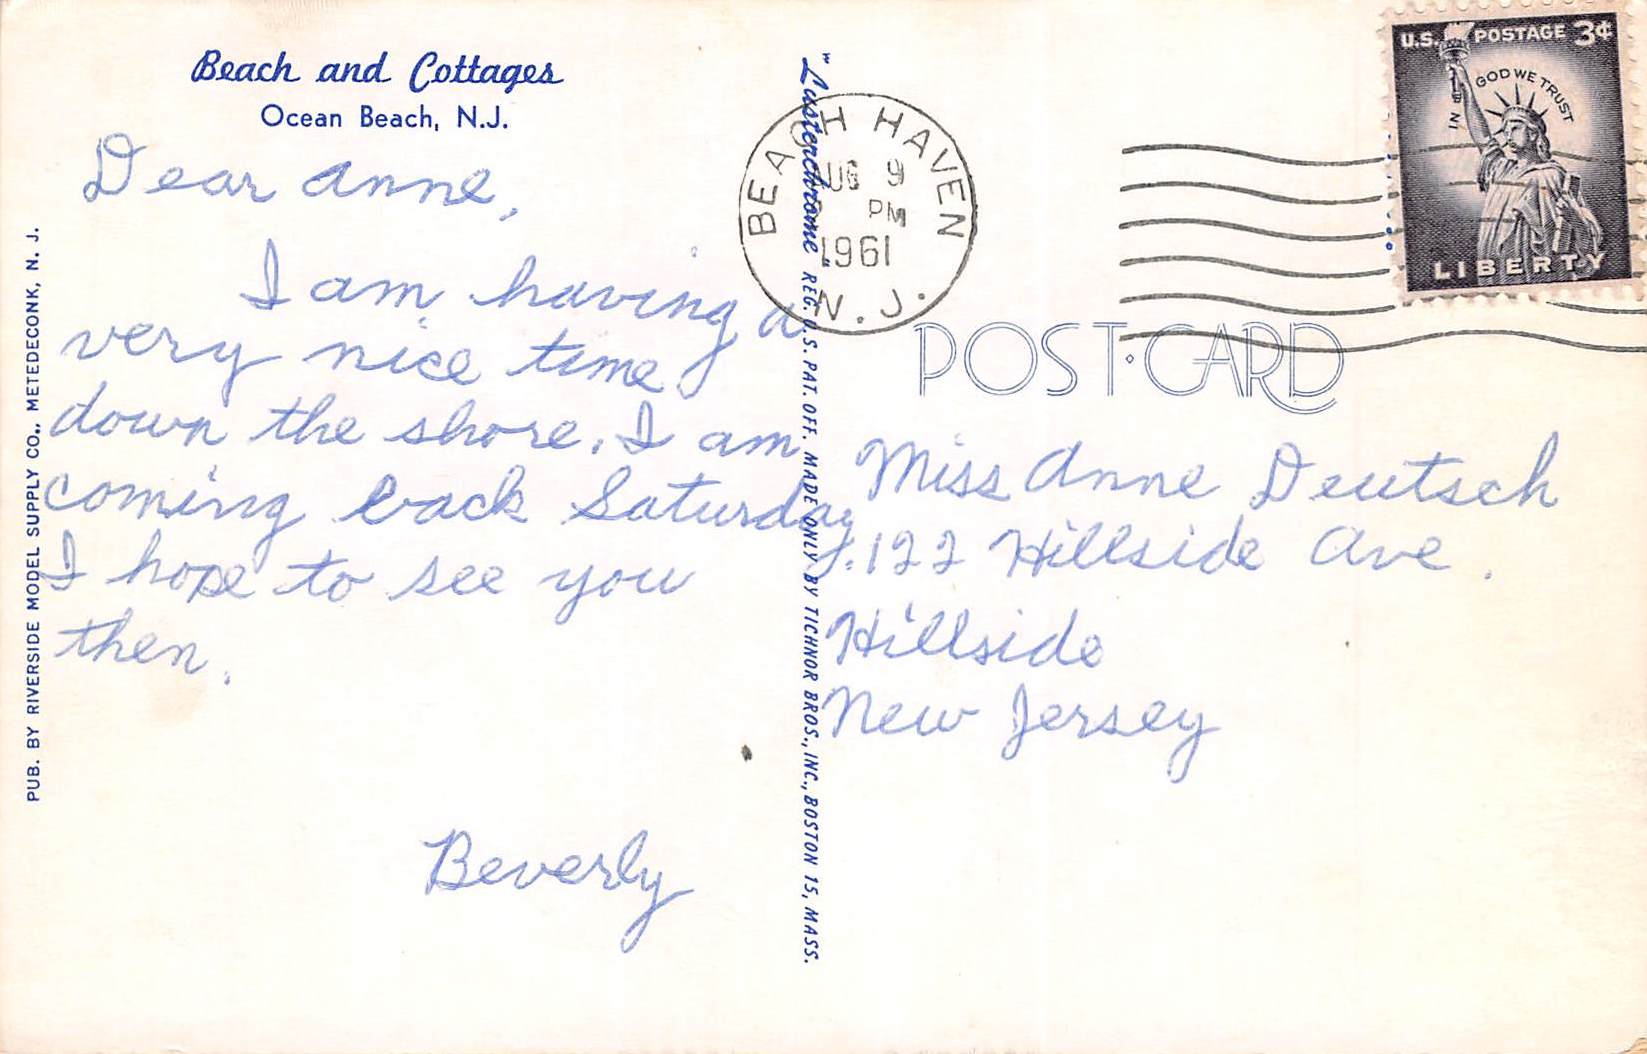 Beach and Cottages
Ocean Beach, N.J.
Dear Anne,
I am having a
very nice time
down the shore. I am
coming back Saturday.
I hope to see you
then.
Beverly
PUB. BY RIVERSIDE MODEL SUPPLY CO., METEDECONK, N. J.
"Lusterchrome" REG. U.S. PAT. OFF. MADE ONLY BY TICHNOR BROS., INC., BOSTON 15, MASS.
BEACH HAVEN
AUG 9
PM
1961
N. J.
U.S. POSTAGE 3¢
IN GOD WE TRUST
LIBERTY
POST CARD
Miss Anne Deutsch
122 Hillside Ave.
Hillside
New Jersey